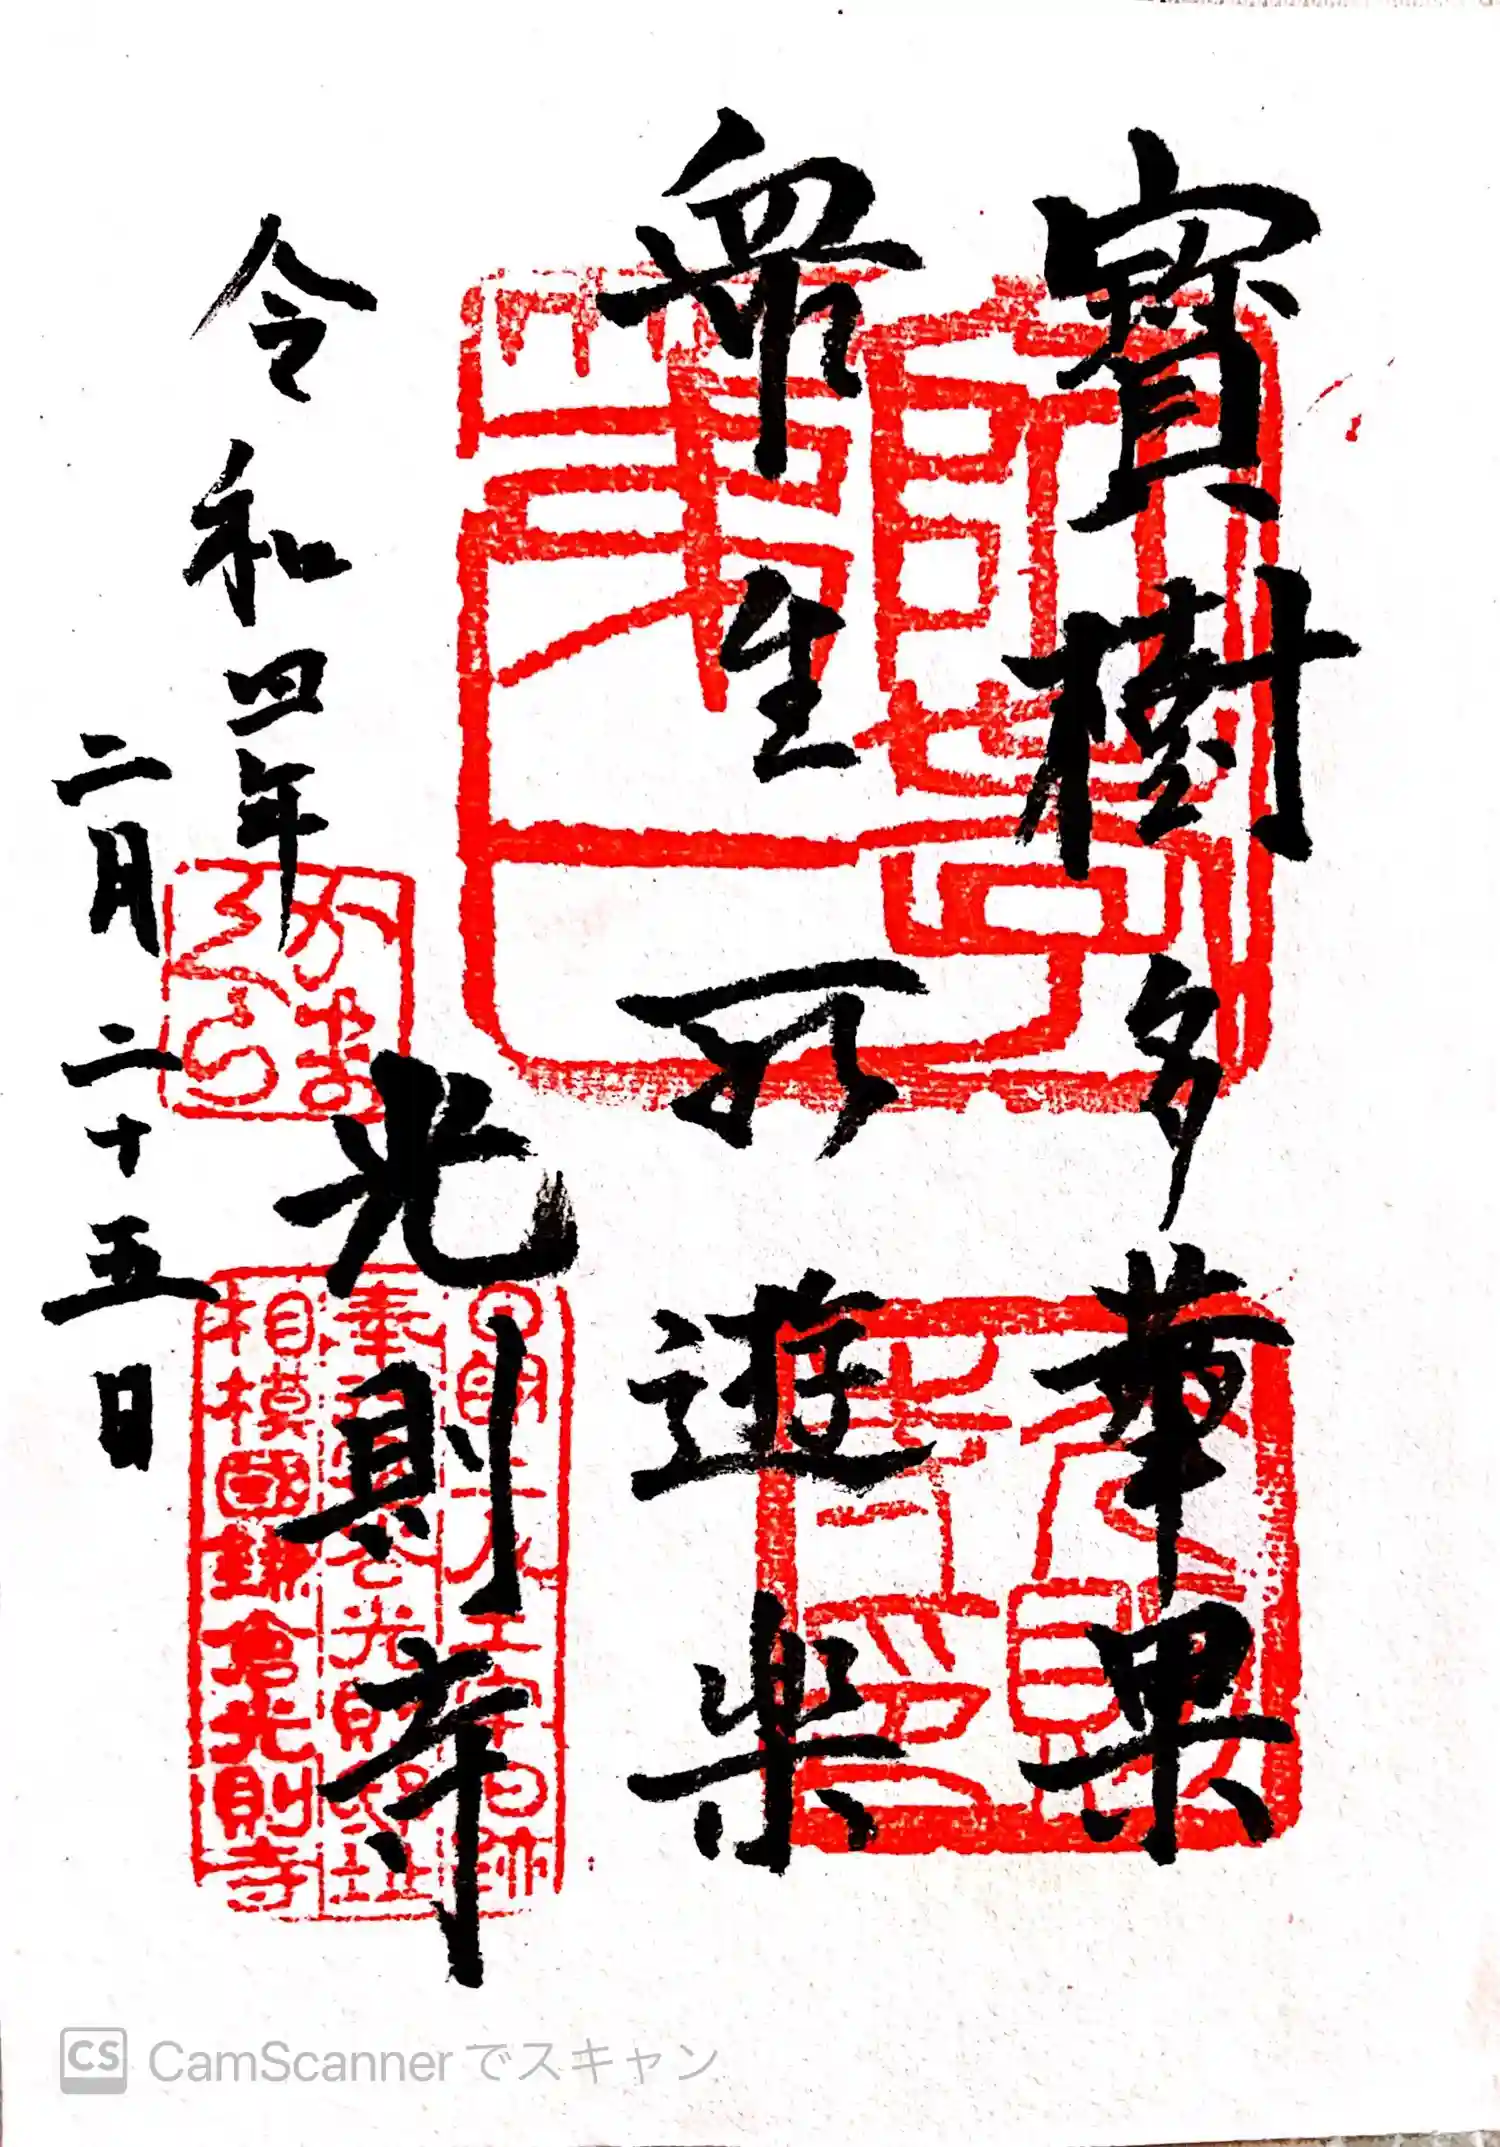 寶樹多華果
衆生所遊楽
光則寺
令和四年
二月二十五日
かまくら
相模國鎌倉光則寺
CS CamScannerでスキャン